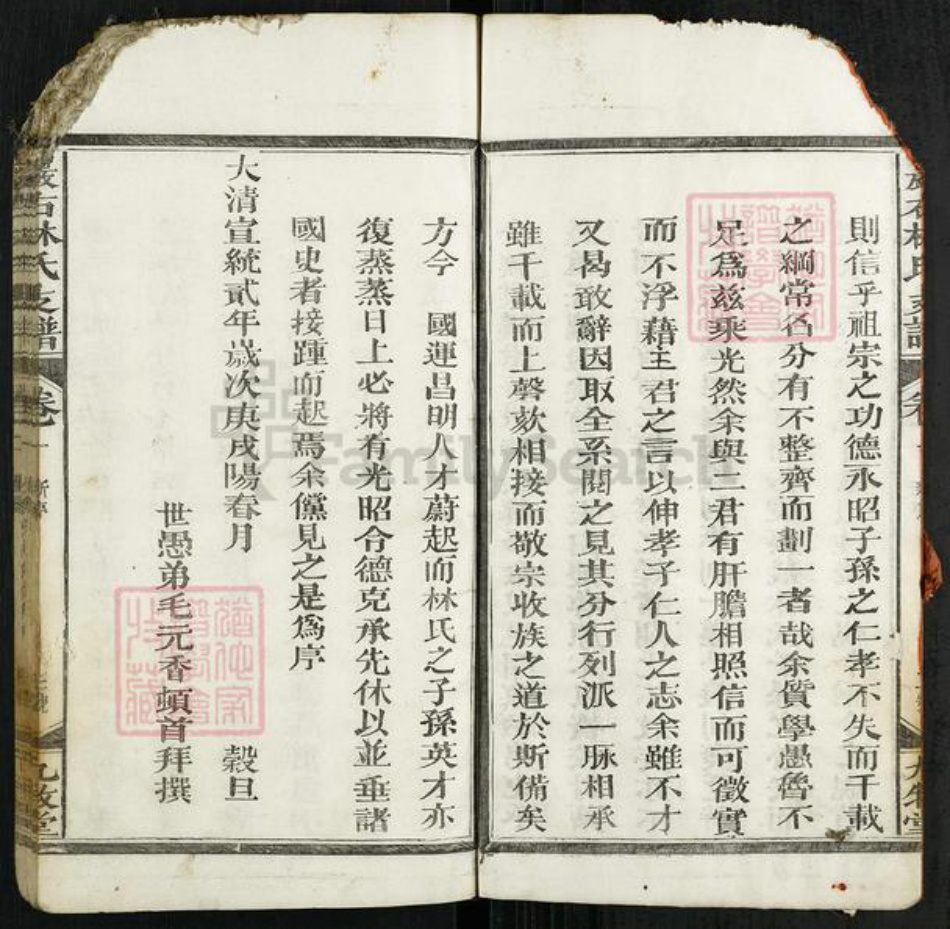 則信乎祖宗之功德永昭子孫之仁孝不失而千載
之綱常名分有不整齊而劃一者哉余質學愚魯不
足爲兹乘光然余與二君有肝膽相照信而可徵實
而不浮藉主君之言以伸孝子仁人之志余雖不才
又曷敢辭因取全系閱之見其分行列派一脉相承
雖千載而上磬欬相接而敬宗收族之道於斯備矣
方今 國運昌明人才蔚起而林氏之子孫英才亦
復蒸蒸日上必將有光昭令德克承先休以並垂諸
國史者接踵而起焉余儻見之是爲序
大清宣統貳年歲次庚戌陽春月 穀旦
世愚弟毛元香頓首拜撰
石林氏支譜
卷一
九牧堂
FamilySearch